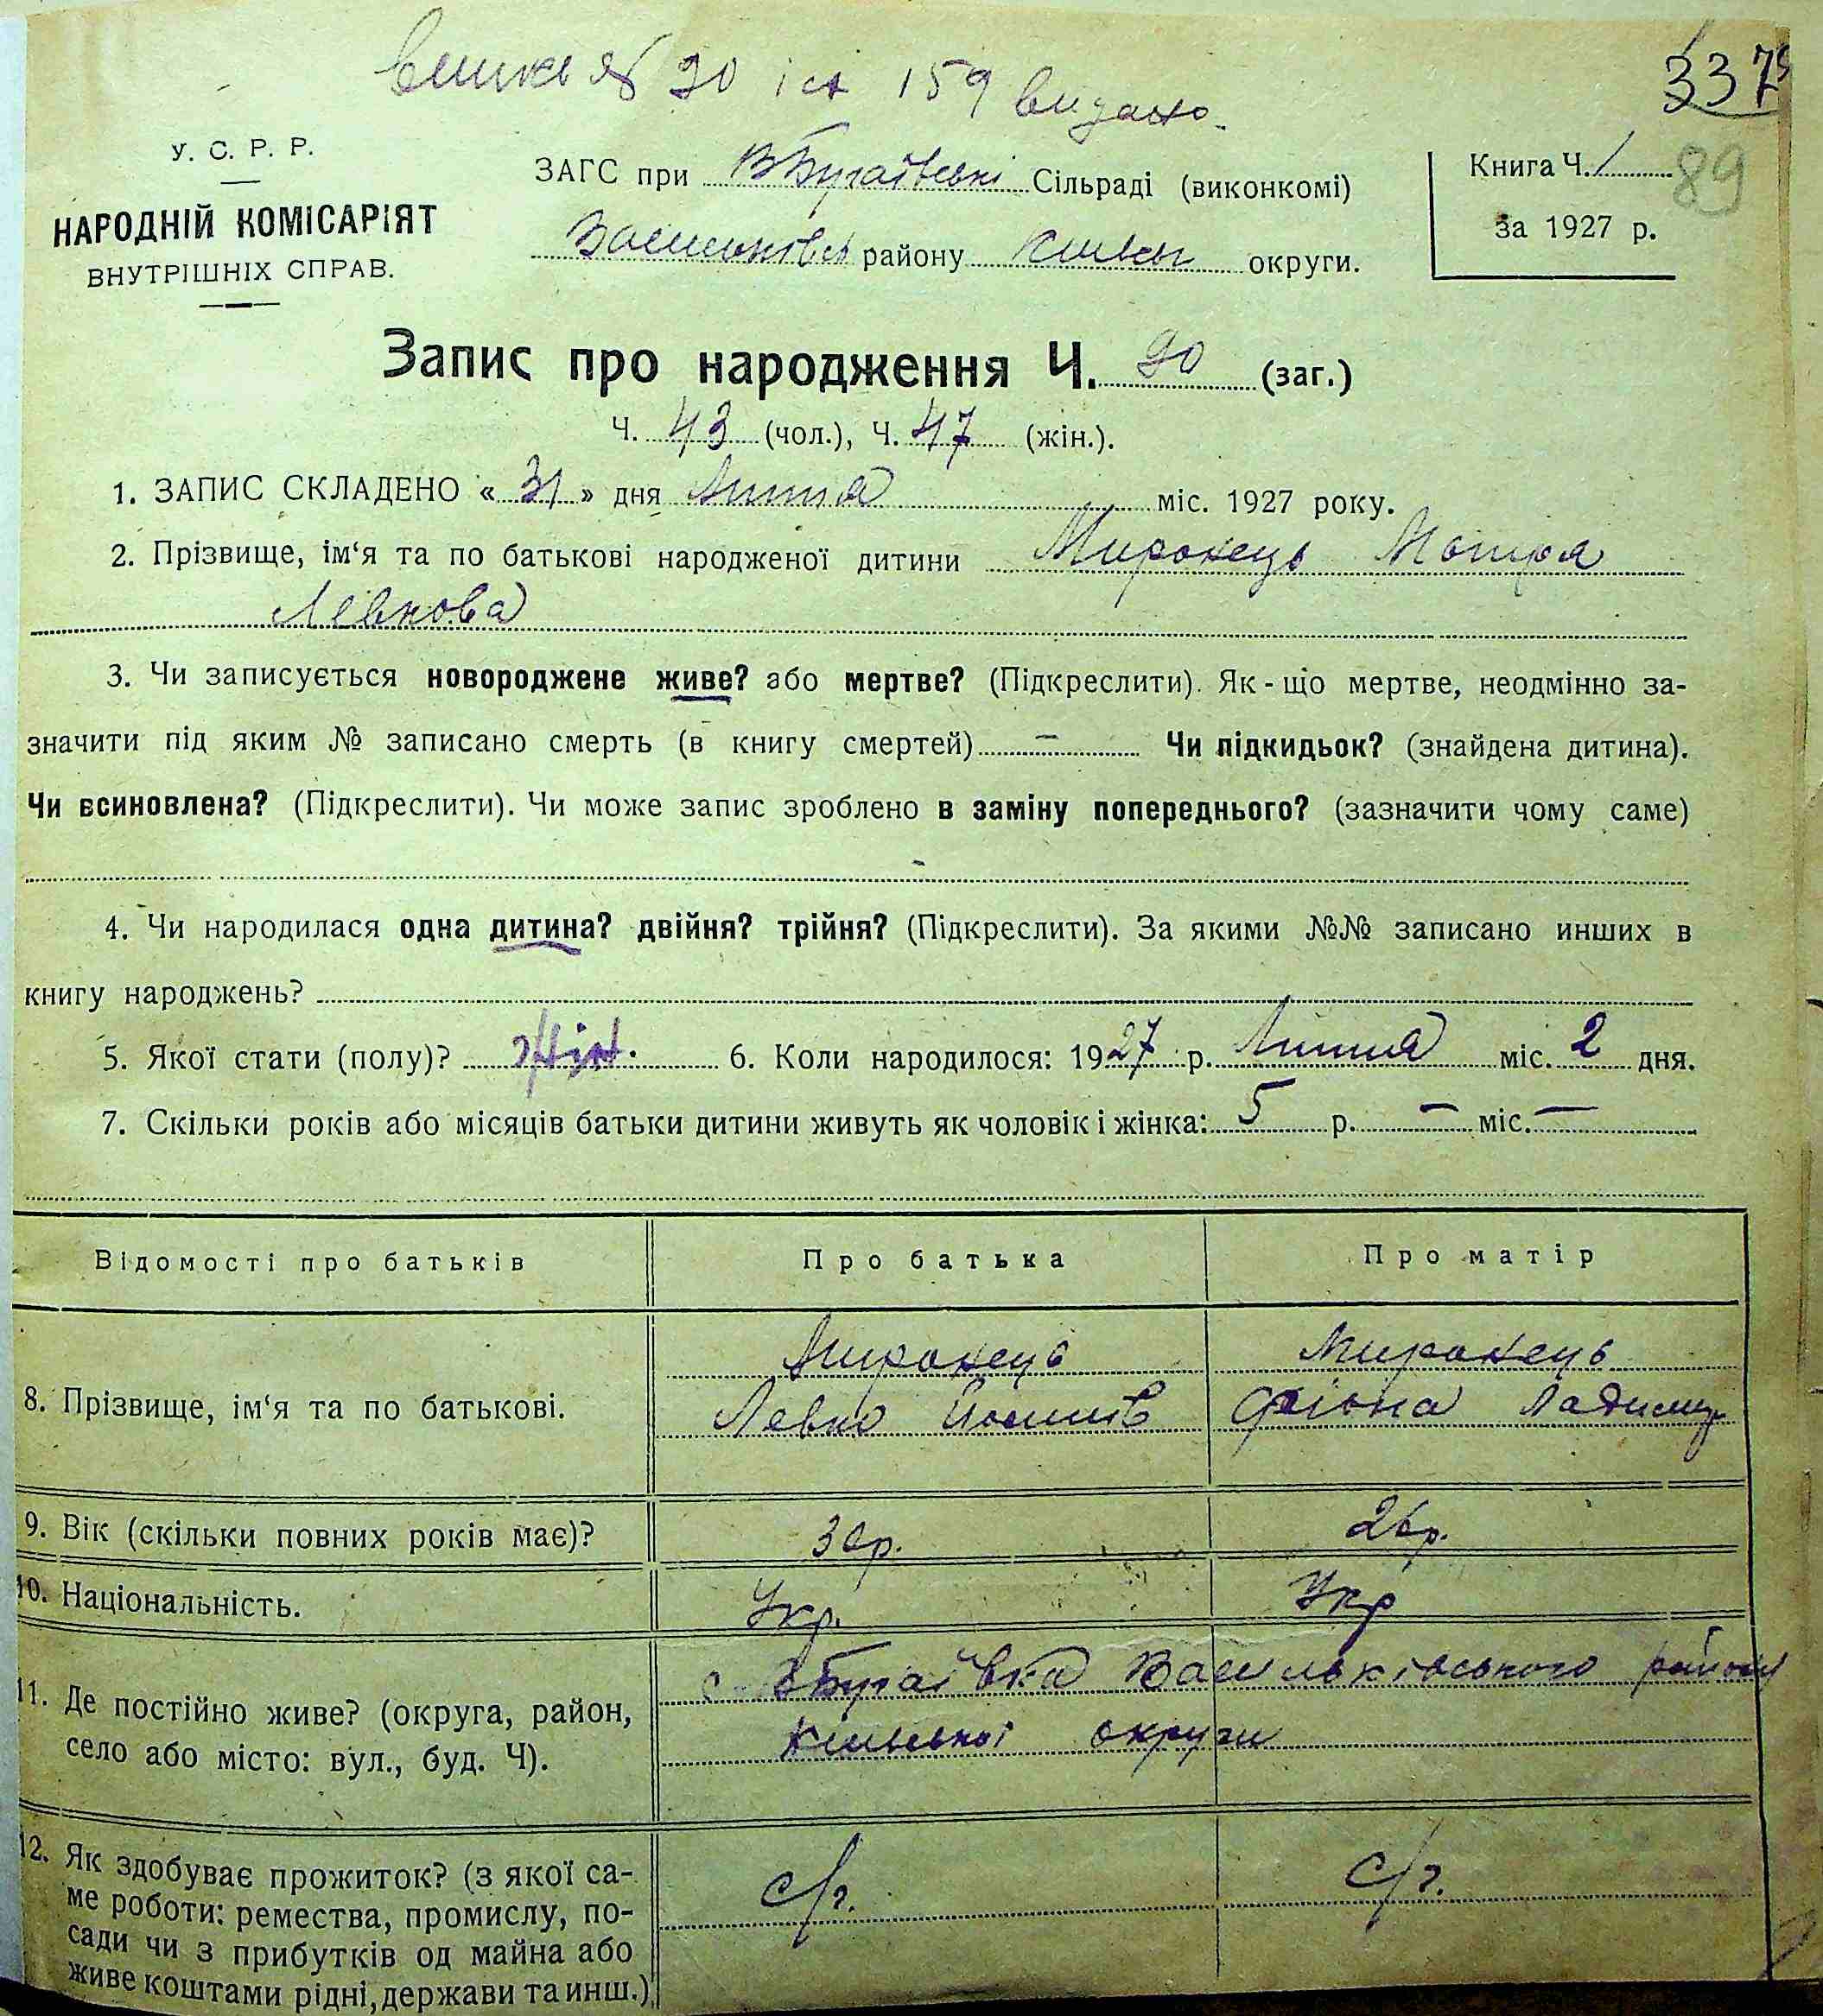 виписъ № 90 і ст 159 видано.
337
89
У. С. Р. Р.
НАРОДНІЙ КОМІСАРІЯТ
ВНУТРІШНІХ СПРАВ.
ЗАГС при В Бугаївські Сільраді (виконкомі)
району округи.
Книга Ч. 1
за 1927 р.
Запис про народження Ч. 90 (заг.)
Ч. 43 (чол.), Ч. 47 (жін.).
1. ЗАПИС СКЛАДЕНО « 31 » дня Липня міс. 1927 року.
2. Прізвище, ім‘я та по батькові народженої дитини Миронець Мотря
Левкова
3. Чи записується новороджене живе? або мертве? (Підкреслити). Як-що мертве, неодмінно за-
значити під яким № записано смерть (в книгу смертей) — Чи підкидьок? (знайдена дитина).
Чи всиновлена? (Підкреслити). Чи може запис зроблено в заміну попереднього? (зазначити чому саме)
4. Чи народилася одна дитина? двійня? трійня? (Підкреслити). За якими №№ записано инших в
книгу народжень?
5. Якої стати (полу)? жін. 6. Коли народилося: 1927 р. Липня міс. 2 дня.
7. Скільки років або місяців батьки дитини живуть як чоловік і жінка: 5 р. — міс. —
Відомості про батьків Про батька Про матір
8. Прізвище, ім‘я та по батькові.
Миронець Миронець
Левко
9. Вік (скільки повних років має)? 30р. 26р.
10. Національність. Укр. Укр
11. Де постійно живе? (округа, район,
село або місто: вул., буд. Ч).
с. В Бугаївка Васильківського району
Київської округи
12. Як здобуває прожиток? (з якої са-
ме роботи: ремества, промислу, по-
сади чи з прибутків од майна або
живе коштами рідні, держави та инш.)
с/г. с/г.